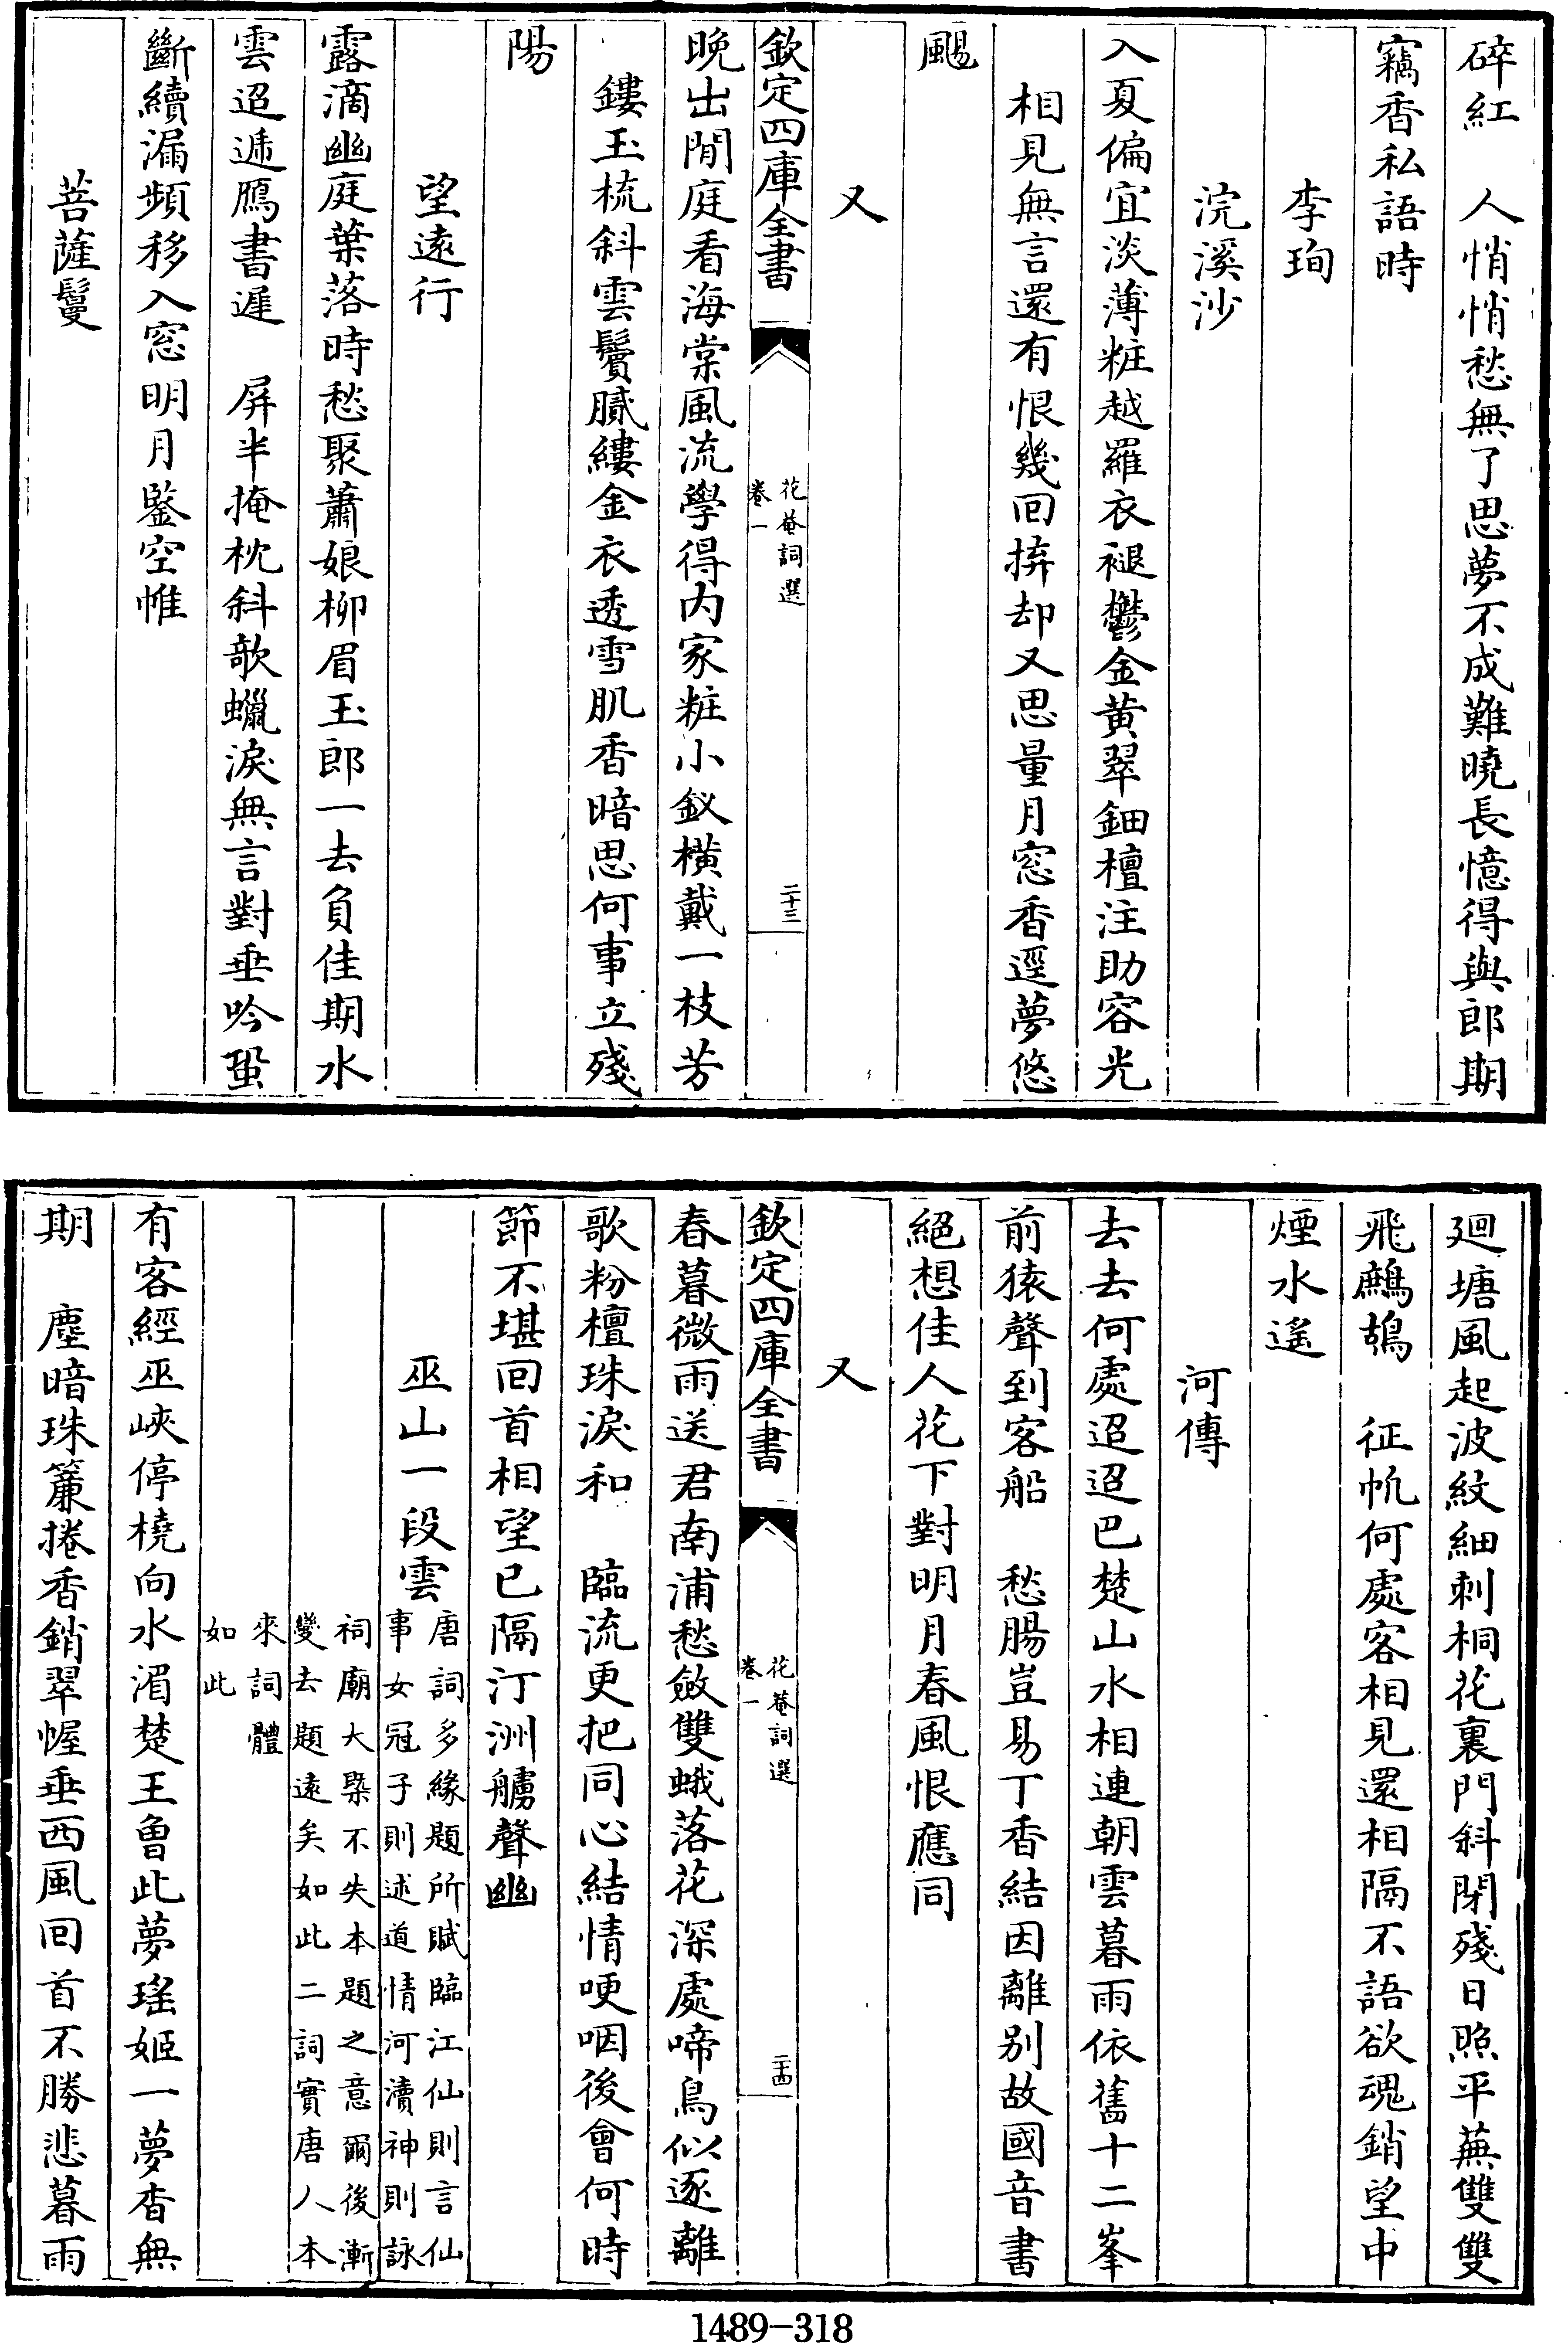 碎紅　人悄悄愁無了思夢不成難曉長憶得與郎期
竊香私語時
李珣
浣溪沙
入夏偏宜淡薄粧越羅衣褪鬱金黃翠鈿檀注助容光
相見無言還有恨幾回拚却又思量月窓香逕夢悠
颺
又
欽定四庫全書
花菴詞選
卷一
二十三
晚出閒庭看海棠風流學得内家粧小釵橫戴一枝芳
鏤玉梳斜雲鬢膩縷金衣透雪肌香暗思何事立殘
陽
望遠行
露滴幽庭葉落時愁聚蕭娘柳眉玉郎一去負佳期水
雲迢遞鴈書遲　屏半掩枕斜欹蠟淚無言對垂吟蛩
斷續漏頻移入窓明月鑒空帷
菩薩鬘
廻塘風起波紋細刺桐花裏門斜閉殘日照平蕪雙雙
飛鷓鴣　征帆何處客相見還相隔不語欲魂銷望中
煙水遙
河傳
去去何處迢迢巴楚山水相連朝雲暮雨依舊十二峯
前猿聲到客船　愁腸豈易丁香結因離别故國音書
絕想佳人花下對明月春風恨應同
又
欽定四庫全書
花菴詞選
卷一
二十四
春暮微雨送君南浦愁斂雙蛾落花深處啼鳥似逐離
歌粉檀珠淚和　臨流更把同心結情哽咽後會何時
節不堪回首相望已隔汀洲艣聲幽
巫山一段雲
唐詞多緣題所賦臨江仙則言仙
事女冠子則述道情河瀆神則詠
祠廟大槩不失本題之意爾後漸
變去題遠矣如此二詞實唐人本
來詞體
如此
有客經巫峽停橈向水湄楚王曾此夢瑤姬一夢杳無
期　塵暗珠簾捲香銷翠幄垂西風回首不勝悲暮雨
1489-318